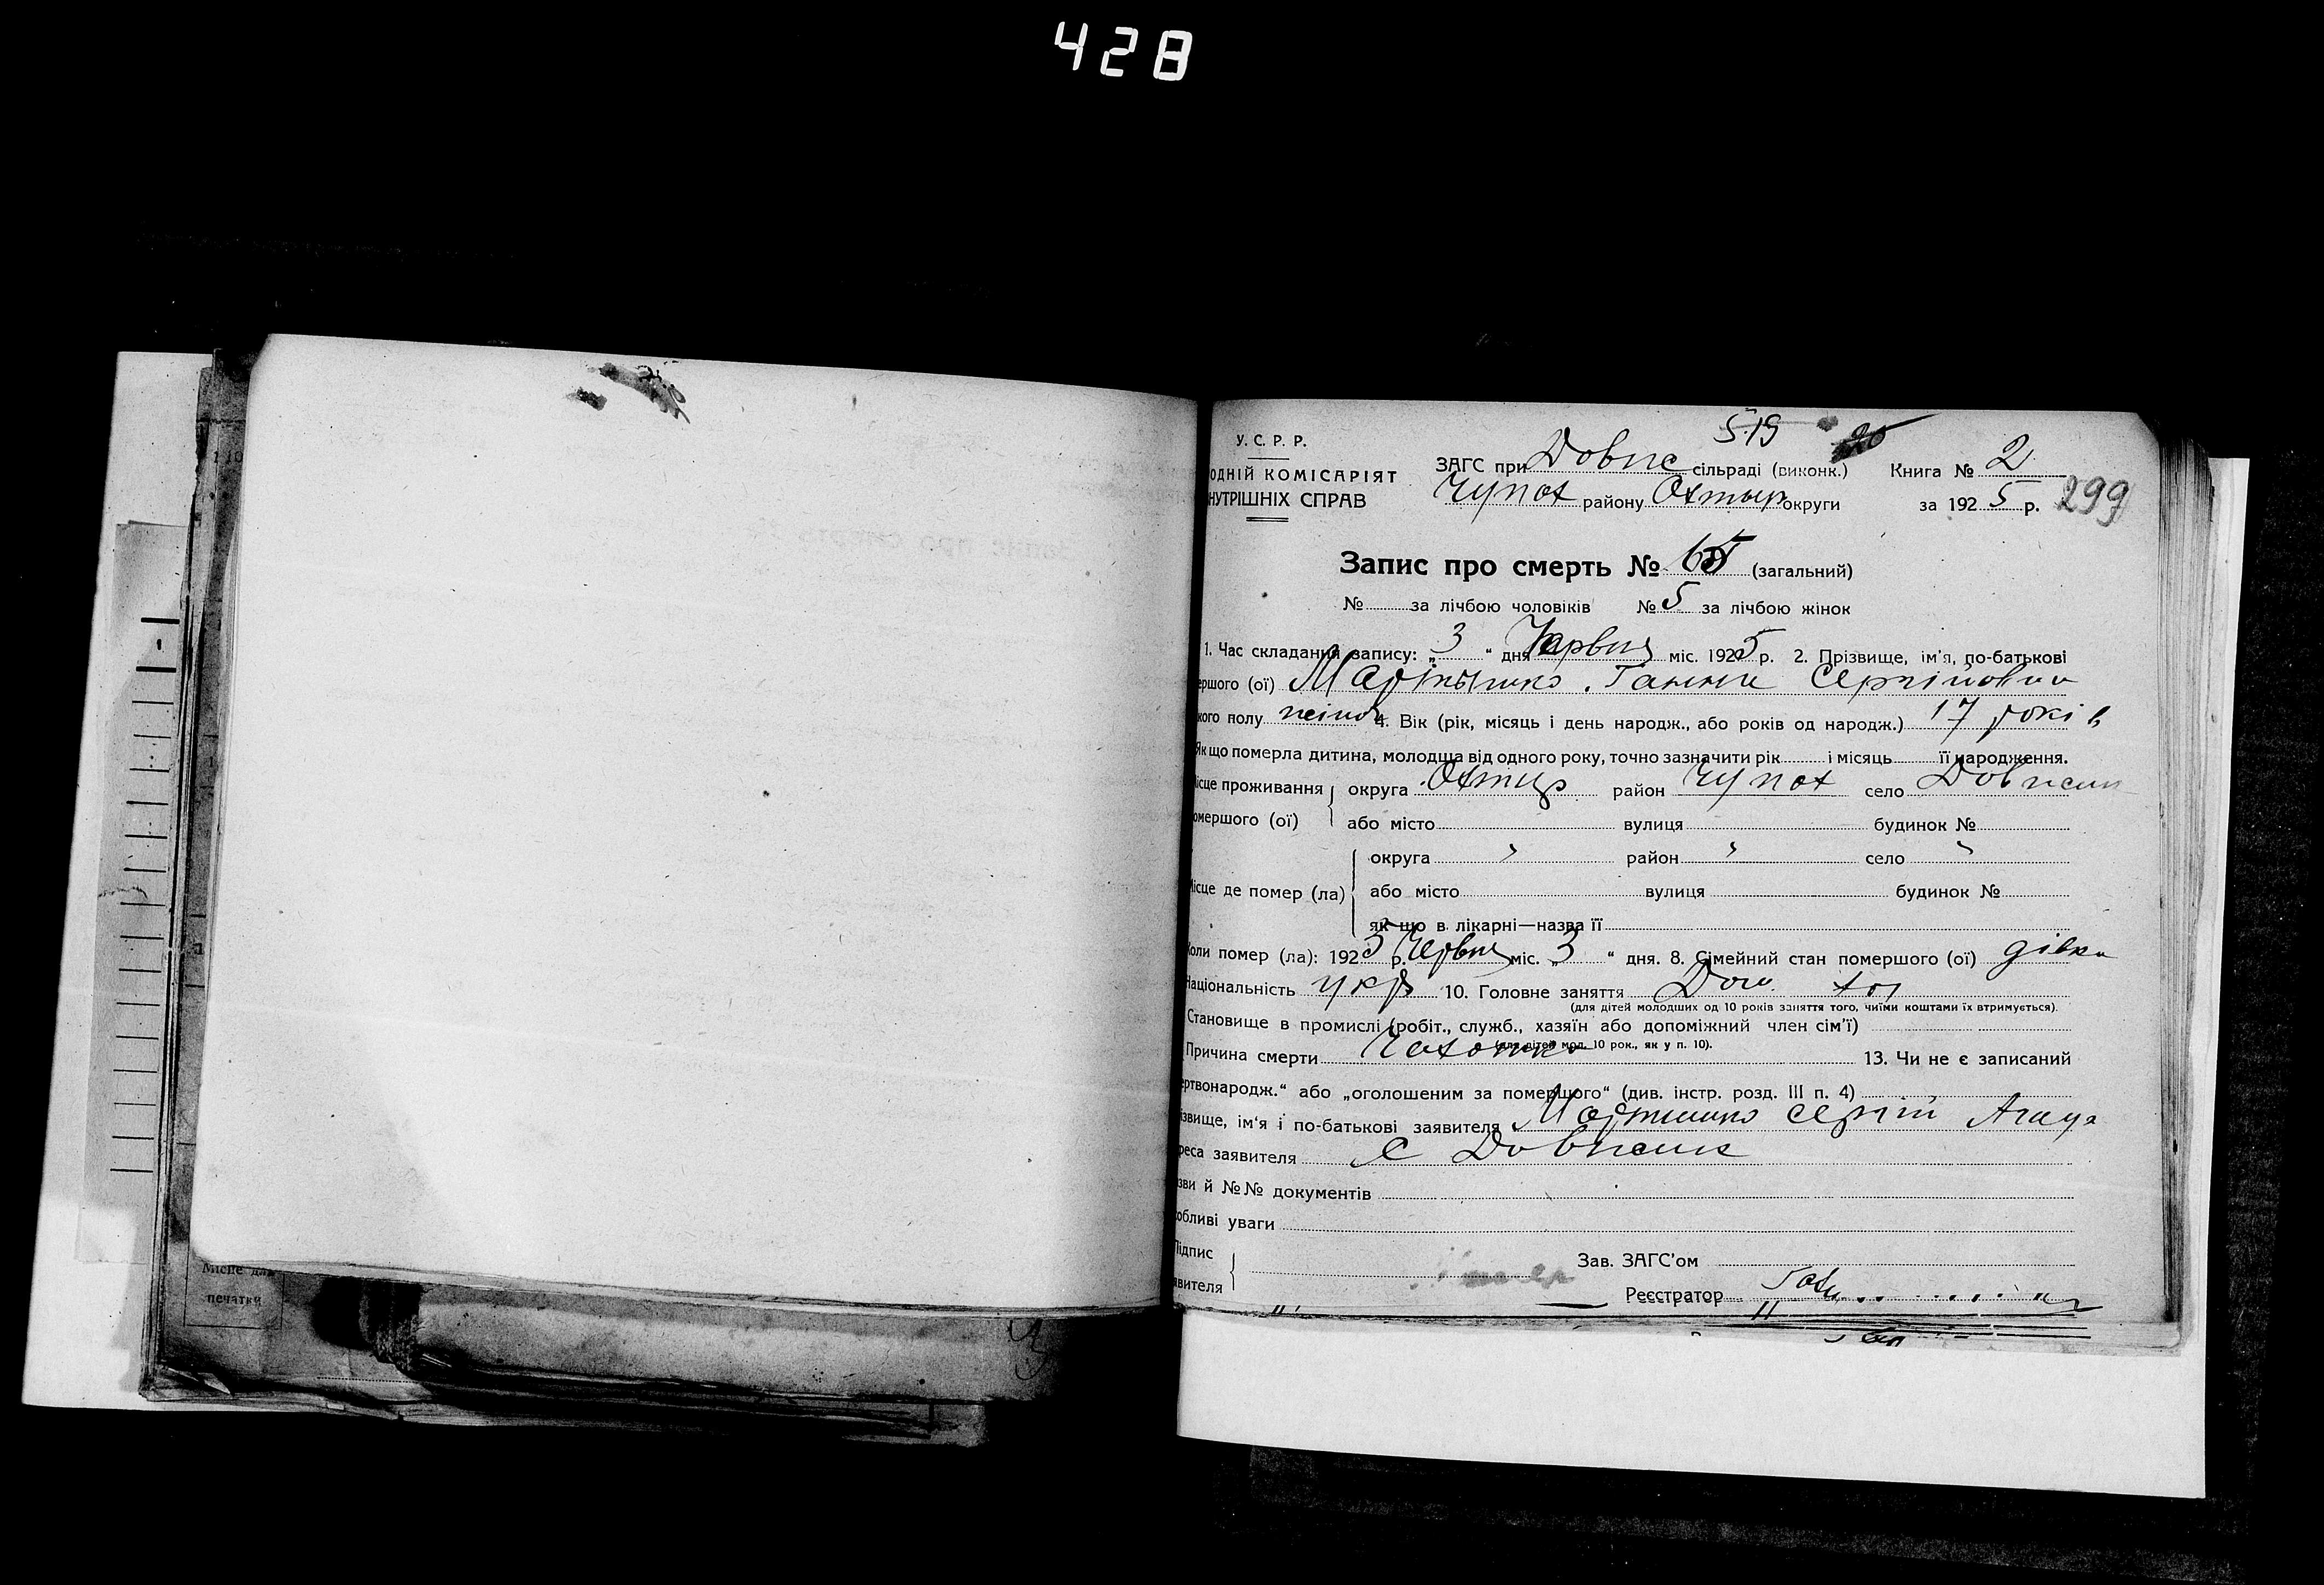 428
5.19
У. С. Р. Р.
ОДНІЙ КОМІСАРІЯТ ЗАГС при Довж сільраді (виконк.) Книга № 2
НУТРІШНІХ СПРАВ Чупах району Охтыр округи за 1925 р. 299
Запис про смерть № (загальний)
№ за лічбою чоловіків № 5 за лічбою жінок
1. Час складання запису: „3“ дня Червня міс. 1925 р. 2. Прізвище, ім'я, по-батькові
ершого (ої) Ганна Сергійовна
кого полу жіноч 4. Вік (рік, місяць і день народж., або років од народж.) 17 років
Як що померла дитина, молодша від одного року, точно зазначити рік і місяць її народження.
ісце проживання округа Охтир район Чупах село
омершого (ої) або місто вулиця будинок №
округа " район " село "
ісце де помер (ла) або місто вулиця будинок №
як що в лікарні—назва її
Коли помер (ла): 1925 р. Червня міс. „3“ дня. 8. Сімейний стан помершого (ої) дівка
Національність укр 10. Головне заняття
(для дітей молодших од 10 років заняття того, чиїми коштами їх втримується).
Становище в промислі (робіт., служб., хазяїн або допоміжний член сім'ї)
(для дітей мол. 10 рок., як у п. 10).
Причина смерти Чахотка 13. Чи не є записаний
ертвонародж.“ або „оголошеним за помершого“ (див. інстр. розд. III п. 4)
ізвище, ім'я і по-батькові заявителя Сергій
реса заявителя с
зви й №№ документів
обливі уваги
Підпис Зав. ЗАГС'ом
явителя Реєстратор
Місце для
печатки